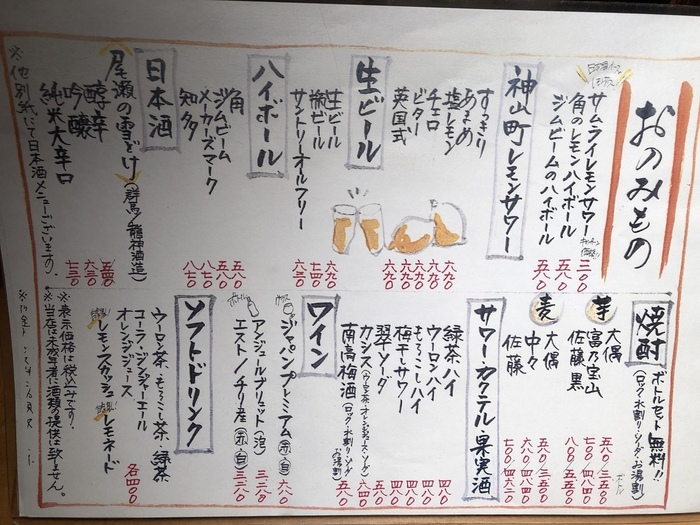 おのみもの
サムライレモンサワー 三〇〇
角のレモンハイボール 五八〇
ジムビームのハイボール 五八〇
神山町レモンサワー
すっきり 六九〇
あまめ 六九〇
塩レモン 六九〇
チェロ 六九〇
ビター 六九〇
英国式 六九〇
生ビール
生ビール
瓶ビール 七四〇
サントリーオールフリー 六三〇
ハイボール
角 五八〇
ジムビーム 五八〇
メーカーズマーク 八七〇
知多 八七〇
日本酒
尾瀬の雪どけ(群馬/龍神酒造)
醇辛
吟醸 六三〇
純米大辛口 七三〇
※他別紙にて日本酒メニューございます。
焼酎 ボトルセット無料!!
(ロック・水割り・ソーダ・お湯割)
ボトル
芋
大隅 五八〇/三五〇〇
富乃宝山 七〇〇/四八〇〇
佐藤黒 八〇〇/五五〇〇
麦
大隅 五八〇/三五〇〇
中々 六八〇/四八〇〇
佐藤 七〇〇
サワー・カクテル・果実酒
緑茶ハイ 四八〇
ウーロンハイ 四八〇
もろこしハイ 四八〇
梅干しサワー
翠ソーダ
カシス(ウーロン茶・オレンジジュース・ソーダ) 六四〇
南高梅酒(ロック・水割り・ソーダ・お湯割) 五八〇
ワイン
グラス ジャパンプレミアム(赤・白) 六八〇
ボトル アンジュールブリュット(泡)
エスト/チリ産(赤・白)
ソフトドリンク
ウーロン茶・もろこし茶・緑茶
コーラ・ジンジャーエール
オレンジジュース
レモンスカッシュ レモネード
各四〇〇
※表示価格は税込みです。
※当店は未成年者に酒類の提供は致しません。